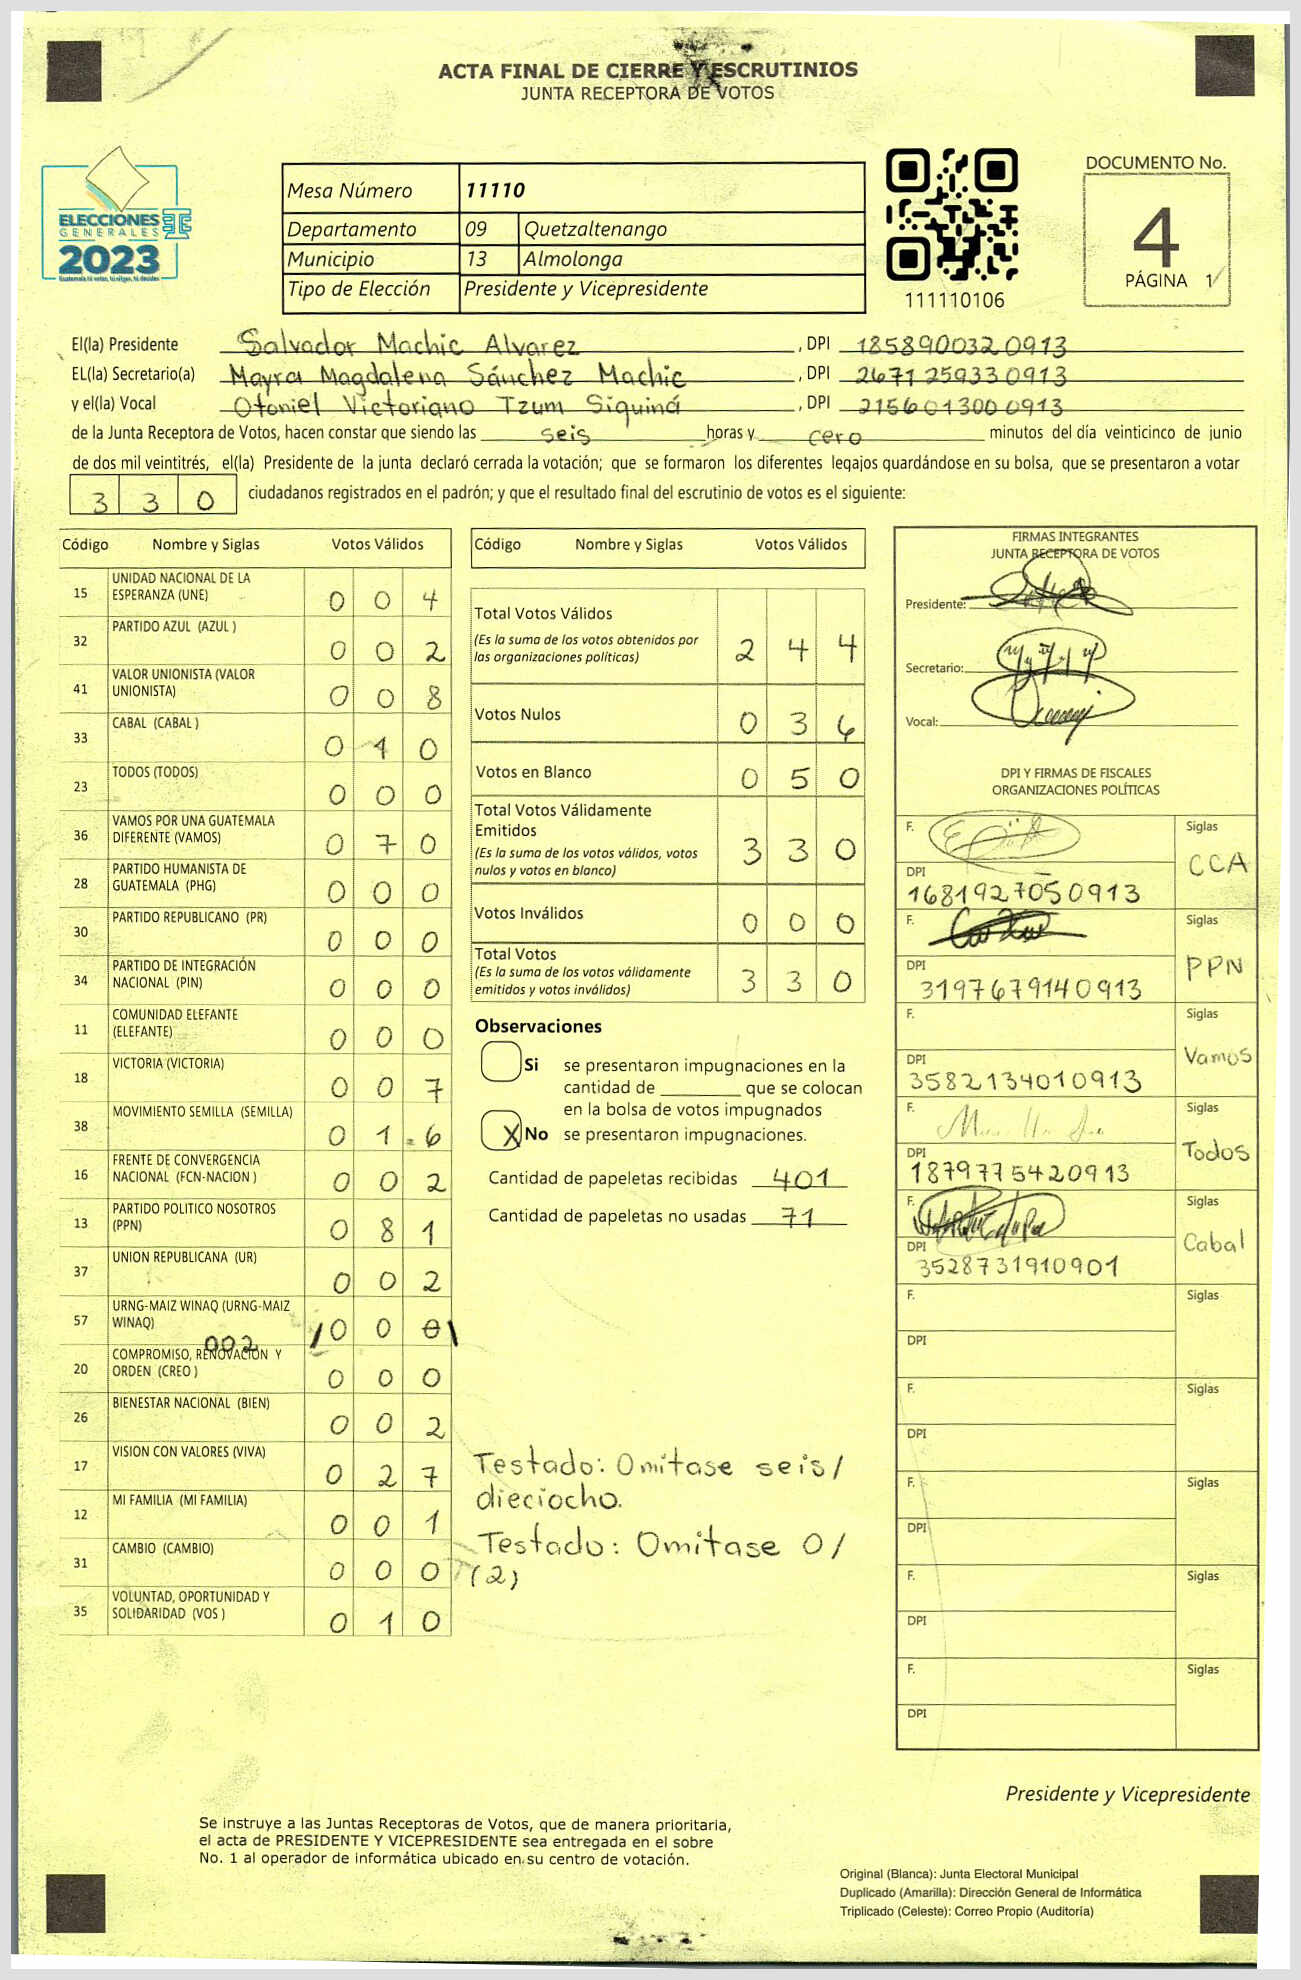 ACTA FINAL DE CIERRE Y ESCRUTINIOS
JUNTA RECEPTORA DE VOTOS
ELECCIONES
GENERALES
2023
Guatemala tú votas, tú eliges, tú decides
Mesa Número 11110
Departamento 09 Quetzaltenango
Municipio 13 Almolonga
Tipo de Elección Presidente y Vicepresidente
111110106
DOCUMENTO No.
4
PÁGINA 1
El(la) Presidente Salvador Machic Alvarez, DPI 1858900320913
EL(la) Secretario(a) Mayra Magdalena Sánchez Machic, DPI 2671259330913
y el(la) Vocal Otoniel Victoriano Tzum Siquiná, DPI 2156013000913
de la Junta Receptora de Votos, hacen constar que siendo las seis horas y cero minutos del día veinticinco de junio
de dos mil veintitrés, el(la) Presidente de la junta declaró cerrada la votación; que se formaron los diferentes legajos guardándose en su bolsa, que se presentaron a votar
330 ciudadanos registrados en el padrón; y que el resultado final del escrutinio de votos es el siguiente:
Código Nombre y Siglas Votos Válidos
15 UNIDAD NACIONAL DE LA ESPERANZA (UNE) 0 0 4
32 PARTIDO AZUL (AZUL ) 0 0 2
41 VALOR UNIONISTA (VALOR UNIONISTA) 0 0 8
33 CABAL (CABAL ) 0 1 0
23 TODOS (TODOS) 0 0 0
36 VAMOS POR UNA GUATEMALA DIFERENTE (VAMOS) 0 7 0
28 PARTIDO HUMANISTA DE GUATEMALA (PHG) 0 0 0
30 PARTIDO REPUBLICANO (PR) 0 0 0
34 PARTIDO DE INTEGRACIÓN NACIONAL (PIN) 0 0 0
11 COMUNIDAD ELEFANTE (ELEFANTE) 0 0 0
18 VICTORIA (VICTORIA) 0 0 7
38 MOVIMIENTO SEMILLA (SEMILLA) 0 1 6
16 FRENTE DE CONVERGENCIA NACIONAL (FCN-NACION ) 0 0 2
13 PARTIDO POLITICO NOSOTROS (PPN) 0 8 1
37 UNION REPUBLICANA (UR) 0 0 2
57 URNG-MAIZ WINAQ (URNG-MAIZ WINAQ) /0 0 0\
002
20 COMPROMISO, RENOVACIÓN Y ORDEN (CREO ) 0 0 0
26 BIENESTAR NACIONAL (BIEN) 0 0 2
17 VISION CON VALORES (VIVA) 0 2 7
12 MI FAMILIA (MI FAMILIA) 0 0 1
31 CAMBIO (CAMBIO) 0 0 0
35 VOLUNTAD, OPORTUNIDAD Y SOLIDARIDAD (VOS ) 0 1 0
Código Nombre y Siglas Votos Válidos
Total Votos Válidos 2 4 4
(Es la suma de los votos obtenidos por
las organizaciones políticas)
Votos Nulos 0 3 6
Votos en Blanco 0 5 0
Total Votos Válidamente
Emitidos 3 3 0
(Es la suma de los votos válidos, votos
nulos y votos en blanco)
Votos Inválidos 0 0 0
Total Votos 3 3 0
(Es la suma de los votos válidamente
emitidos y votos inválidos)
Observaciones
Si se presentaron impugnaciones en la
cantidad de ________ que se colocan
en la bolsa de votos impugnados
X No se presentaron impugnaciones.
Cantidad de papeletas recibidas 401
Cantidad de papeletas no usadas 71
Testado: Omitase seis/
dieciocho.
Testado: Omitase 0/
(2)
FIRMAS INTEGRANTES
JUNTA RECEPTORA DE VOTOS
Presidente:
Secretario:
Vocal:
DPI Y FIRMAS DE FISCALES
ORGANIZACIONES POLÍTICAS
F. Siglas
DPI 1681927050913 CCA
F. Siglas
DPI 3197679140913 PPN
F. Siglas
DPI 3582134010913 Vamos
F. Siglas
DPI 1879775420913 Todos
F. Siglas
DPI 3528731910901 Cabal
F. Siglas
DPI
F. Siglas
DPI
F. Siglas
DPI
F. Siglas
DPI
F. Siglas
DPI
Presidente y Vicepresidente
Se instruye a las Juntas Receptoras de Votos, que de manera prioritaria,
el acta de PRESIDENTE Y VICEPRESIDENTE sea entregada en el sobre
No. 1 al operador de informática ubicado en su centro de votación.
Original (Blanca): Junta Electoral Municipal
Duplicado (Amarilla): Dirección General de Informática
Triplicado (Celeste): Correo Propio (Auditoría)